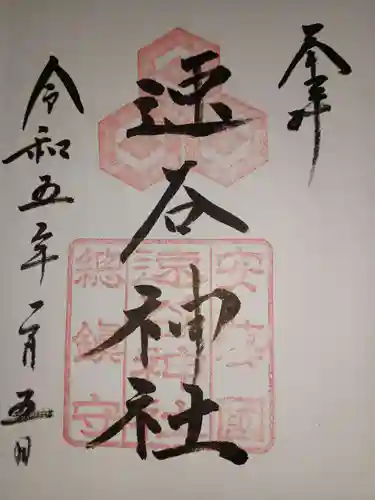 奉拝
速谷神社
安芸國
速谷神社
總鎮守
令和五年一月五日